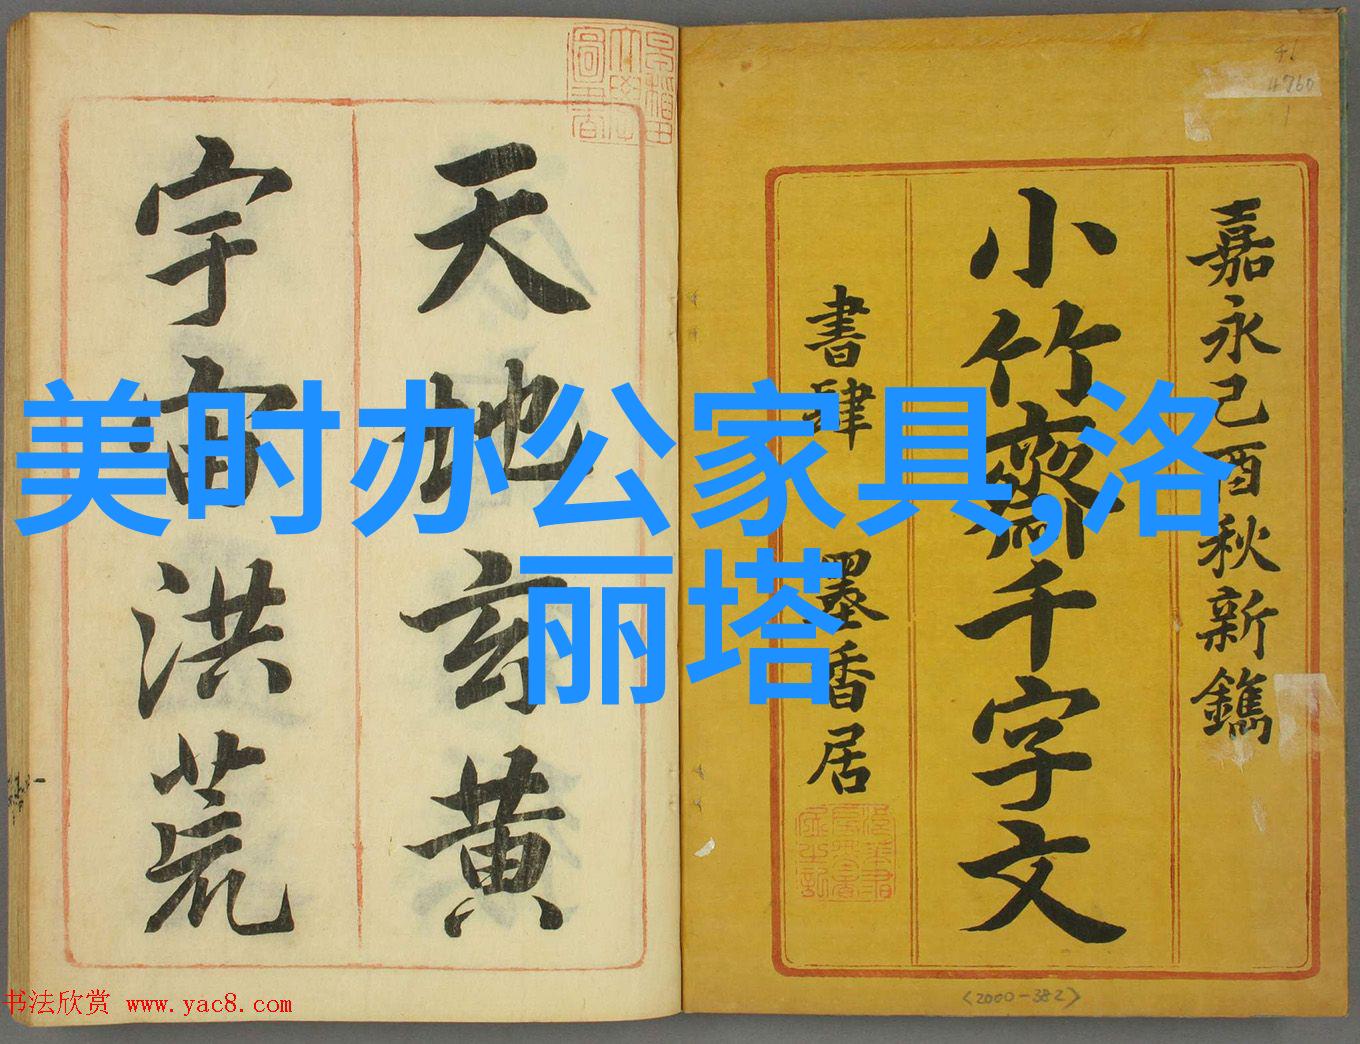 嘉永己酉秋新鐫
小竹齋千字文
書肆 墨香居
天地玄黃
宇宙洪荒
美时办公家具,洛
丽塔
46
4760
<2000-382>
书法欣赏 www.yac8.com